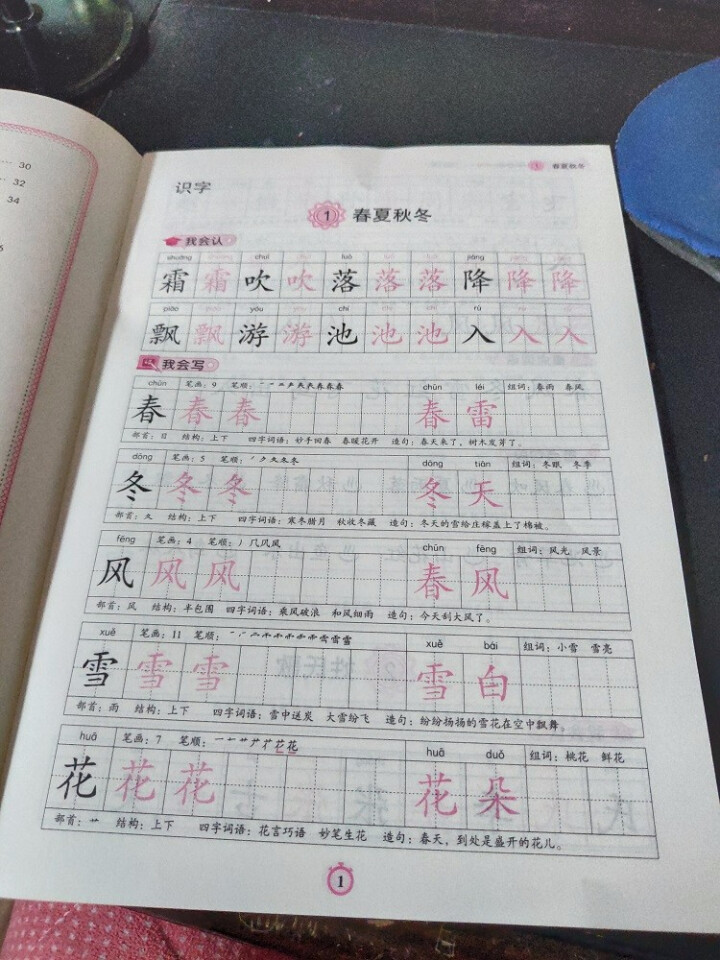 30
32
34
1 春夏秋冬
识字
1 春夏秋冬
我会认
shuāng chuī luò jiàng
霜 霜 吹 吹 落 落 落 降 降 降
piāo yóu chí rù
飘 飘 游 游 池 池 池 入 入 入
我会写
chūn 笔画：9 笔顺： chūn léi 组词：春雨 春风
春 春 春 春 雷
部首：日 结构：上下 四字词语：妙手回春 春暖花开 造句：春天来了，树木发芽了。
dōng 笔画：5 笔顺： dōng tiān 组词：冬眠 冬季
冬 冬 冬 冬 天
部首：夂 结构：上下 四字词语：寒冬腊月 秋收冬藏 造句：冬天的雪给庄稼盖上了棉被。
fēng 笔画：4 笔顺： chūn fēng 组词：风光 风景
风 风 风 春 风
部首：风 结构：半包围 四字词语：乘风破浪 和风细雨 造句：今天刮大风了。
xuě 笔画：11 笔顺： xuě bái 组词：小雪 雪亮
雪 雪 雪 雪 白
部首：雨 结构：上下 四字词语：雪中送炭 大雪纷飞 造句：纷纷扬扬的雪花在空中飘舞。
huā 笔画：7 笔顺： huā duǒ 组词：桃花 鲜花
花 花 花 花 朵
部首：艹 结构：上下 四字词语：花言巧语 妙笔生花 造句：春天，到处是盛开的花儿。
1